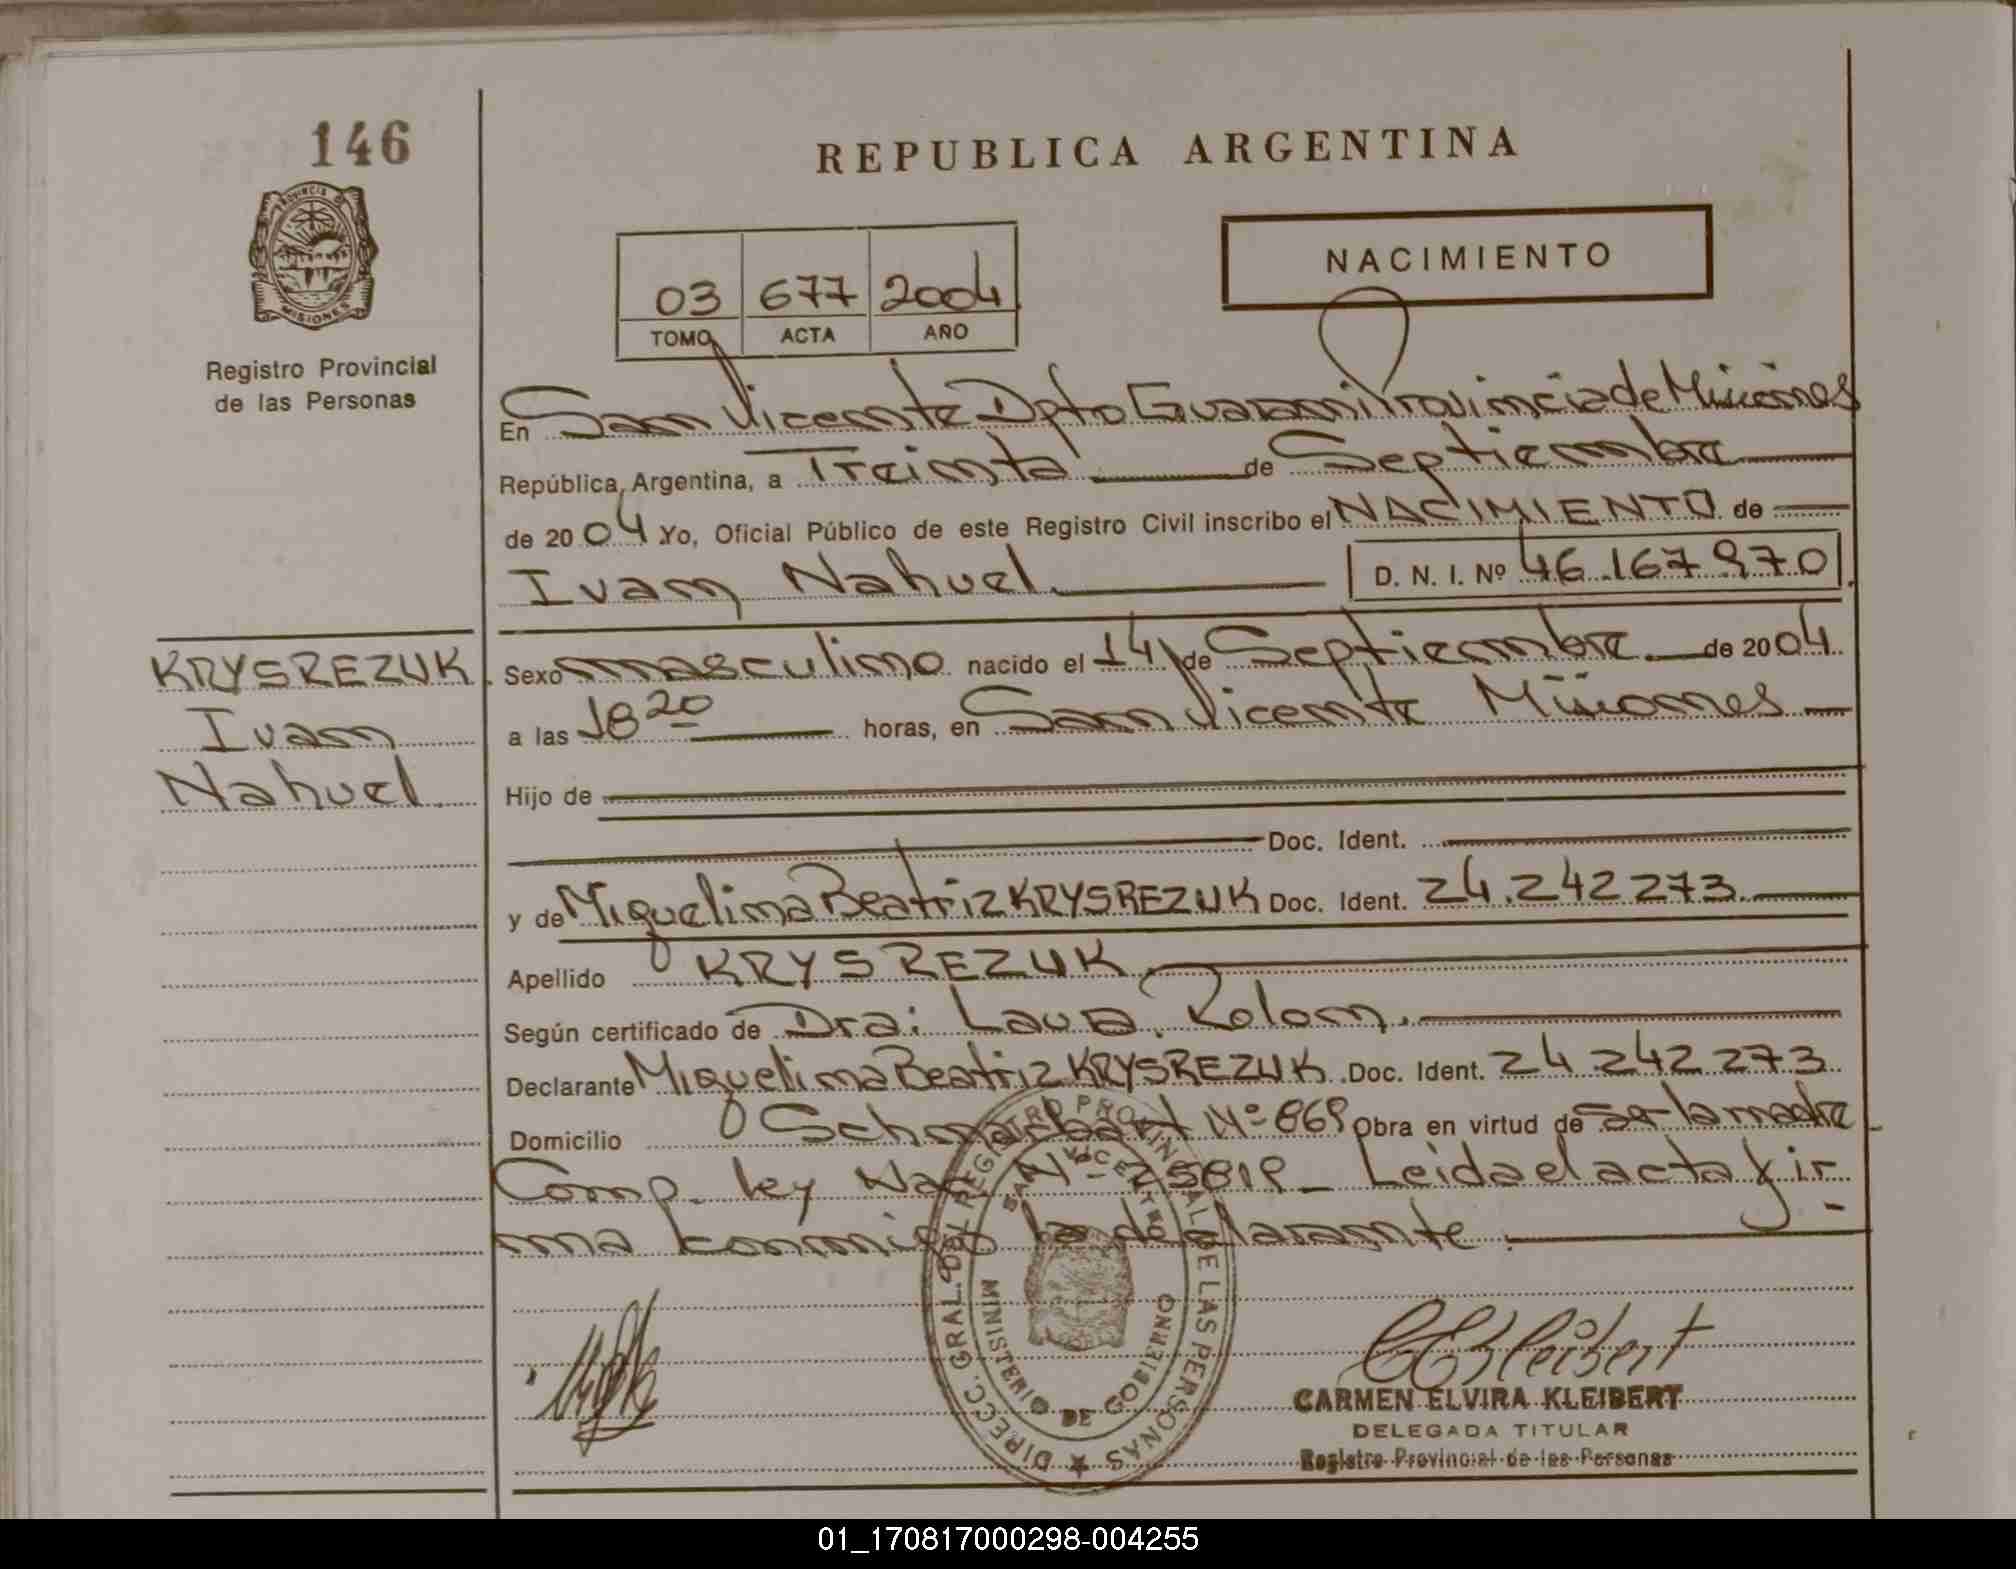 146
REPUBLICA ARGENTINA
PROVINCIA DE
MISIONES
Registro Provincial
de las Personas
NACIMIENTO
03 677 2004
TOMO ACTA AÑO
En San Vicente Dpto Guarani Provincia de Misiones
República Argentina, a Treinta de Septiembre
de 2004 Yo, Oficial Público de este Registro Civil inscribo el NACIMIENTO de
Ivan Nahuel D. N. I. Nº 46.167.970
KRYSREZUK
Ivan
Nahuel
Sexo masculino nacido el 14 de Septiembre de 2004
a las 18 20 horas, en San Vicente Misiones
Hijo de
Doc. Ident.
y de Miguelina Beatriz KRYSREZUK Doc. Ident. 24.242.273.
Apellido KRYSREZUK
Según certificado de Dra: Laura Rolon.
Declarante Miguelina Beatriz KRYSREZUK. Doc. Ident. 24.242.273
Domicilio Nº 869 Obra en virtud de ser la madre
Comp. ley Nac Nº 25819_ Leida el acta fir
ma conmigo la declarante.
DIRECC. GRAL. DEL REGISTRO PROVINCIAL DE LAS PERSONAS
SAN VICENTE
MINISTERIO DE GOBIERNO
CEKleibert
CARMEN ELVIRA KLEIBERT
DELEGADA TITULAR
Registro Provincial de las Personas
01_170817000298-004255